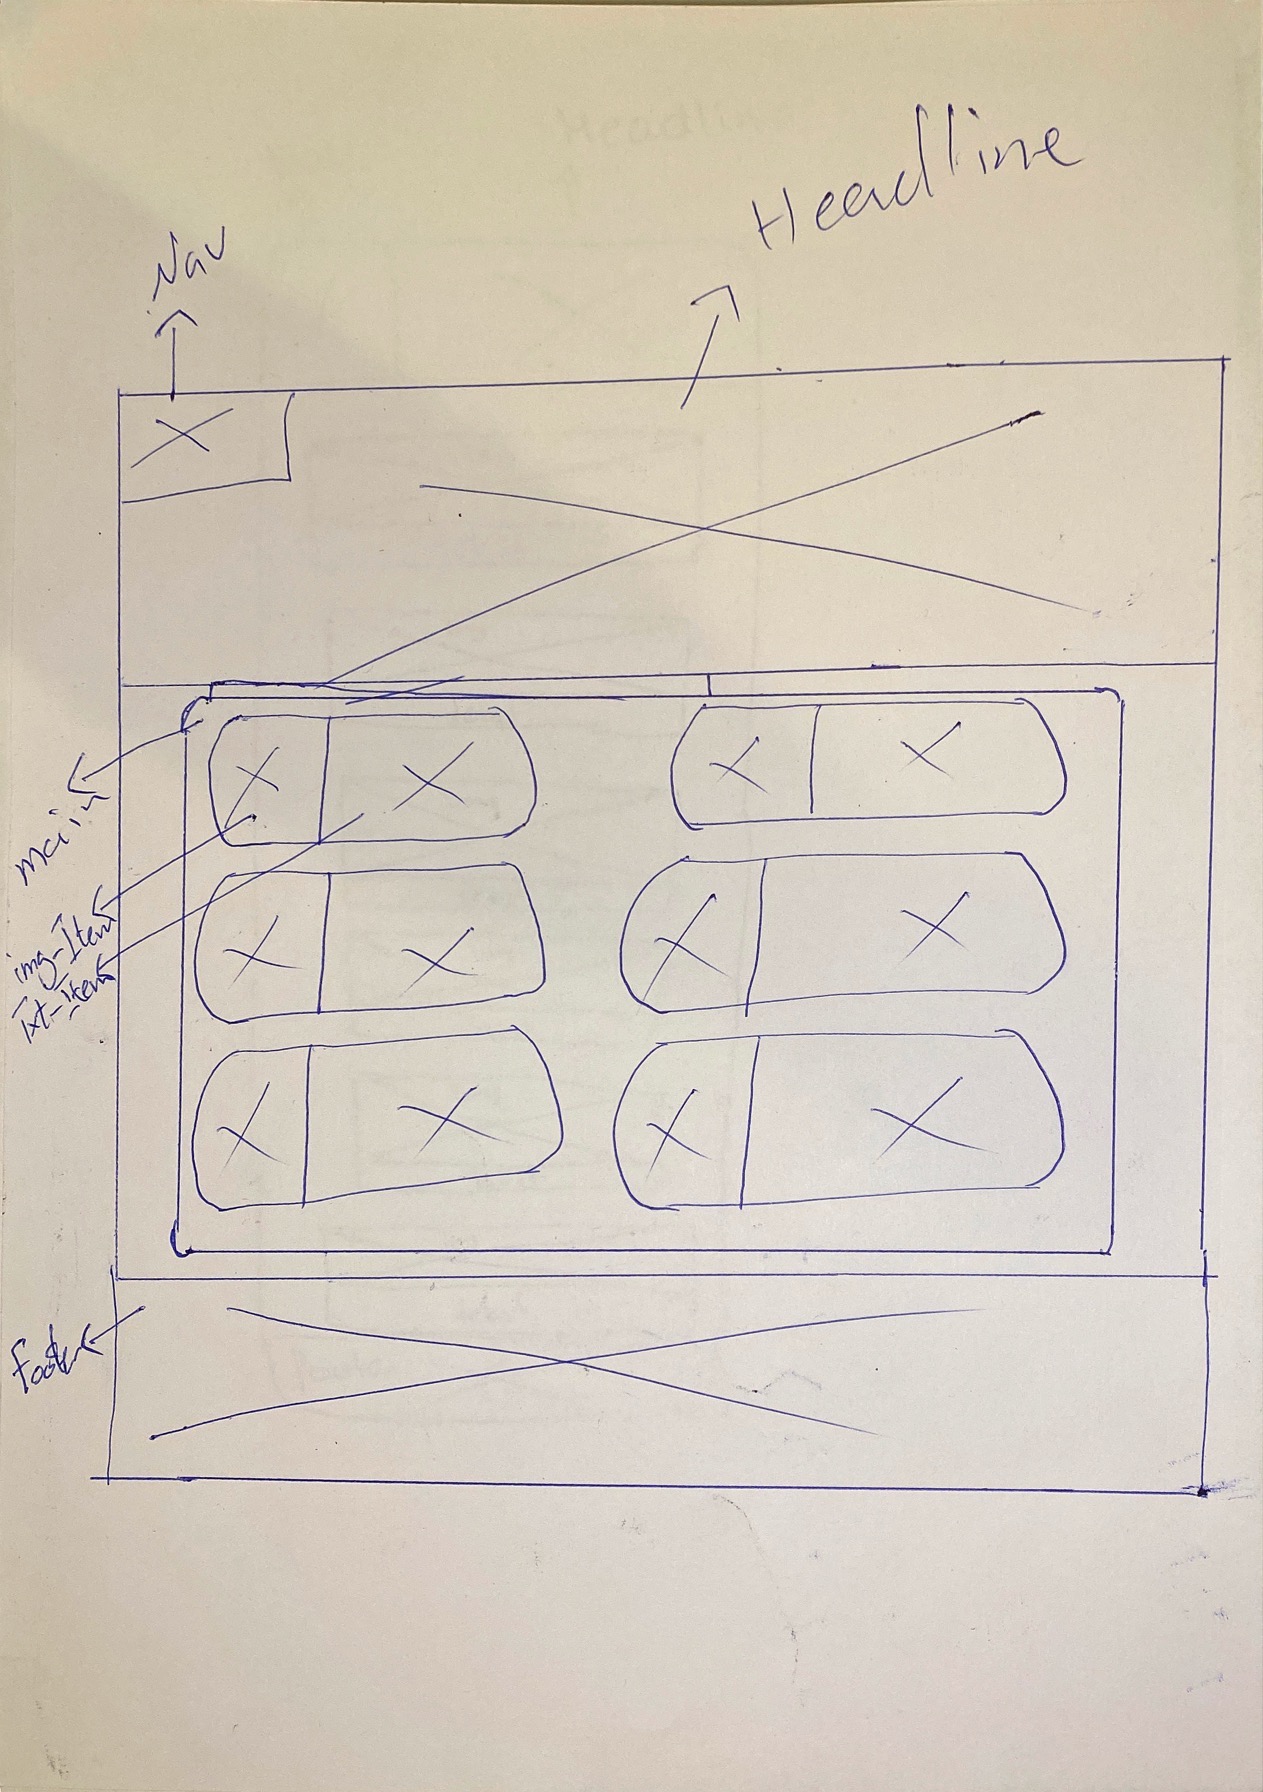 Headline
Nav
main
img-Item
Txt-Item
footer